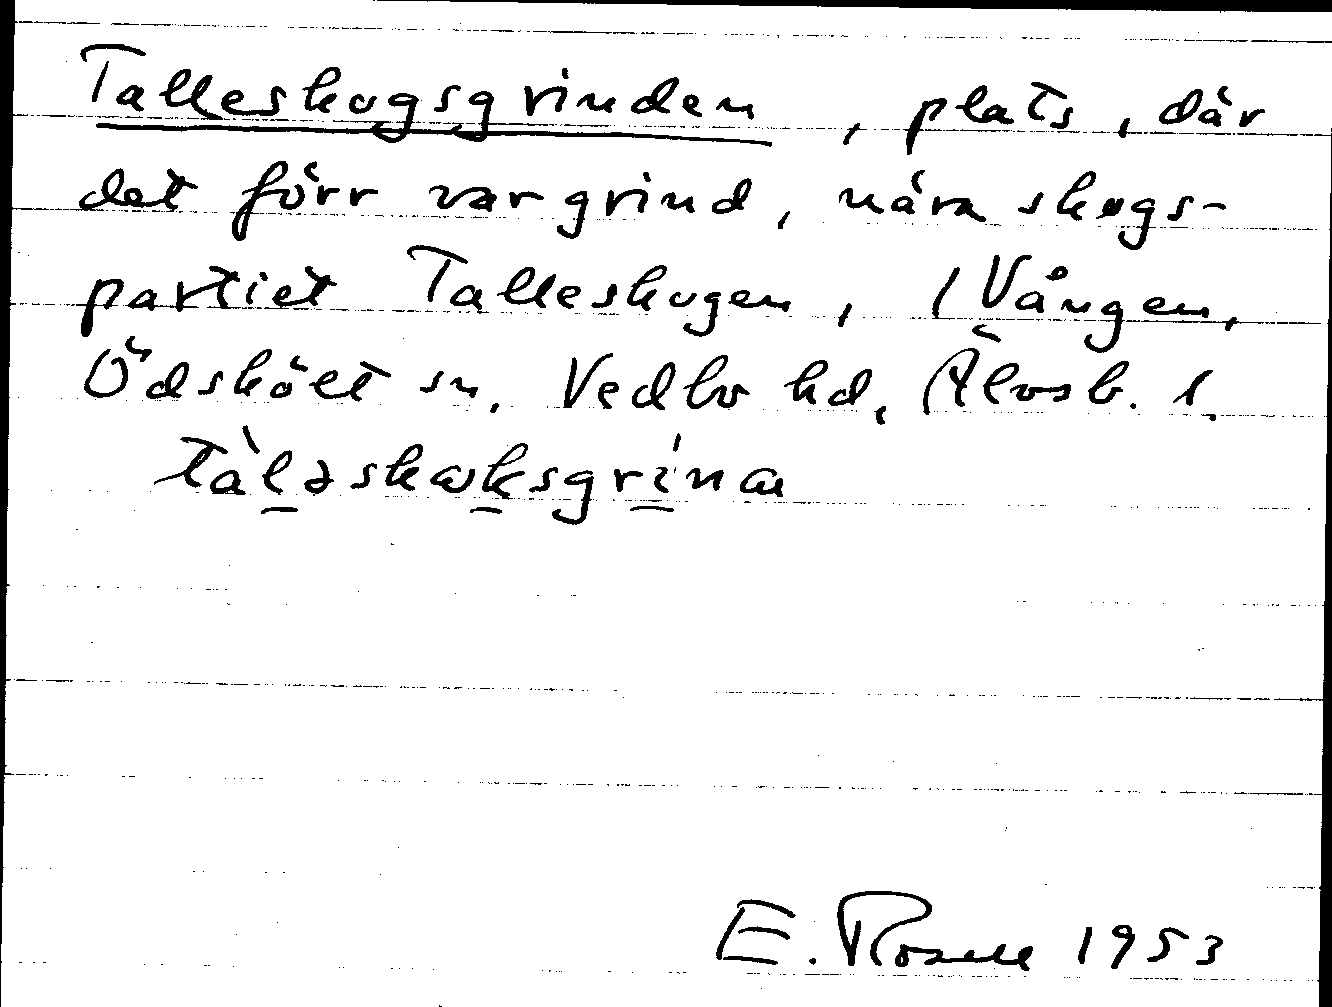 Talleskogsgrinden, plats, där
det förr var grind, nära skogs-
partiet Talleskogen, 1 Vången,
Ödsköлt sn, Vedbo hd, Älvsb. l.
tàlǝskωksgrínα
E. Rosell 1953